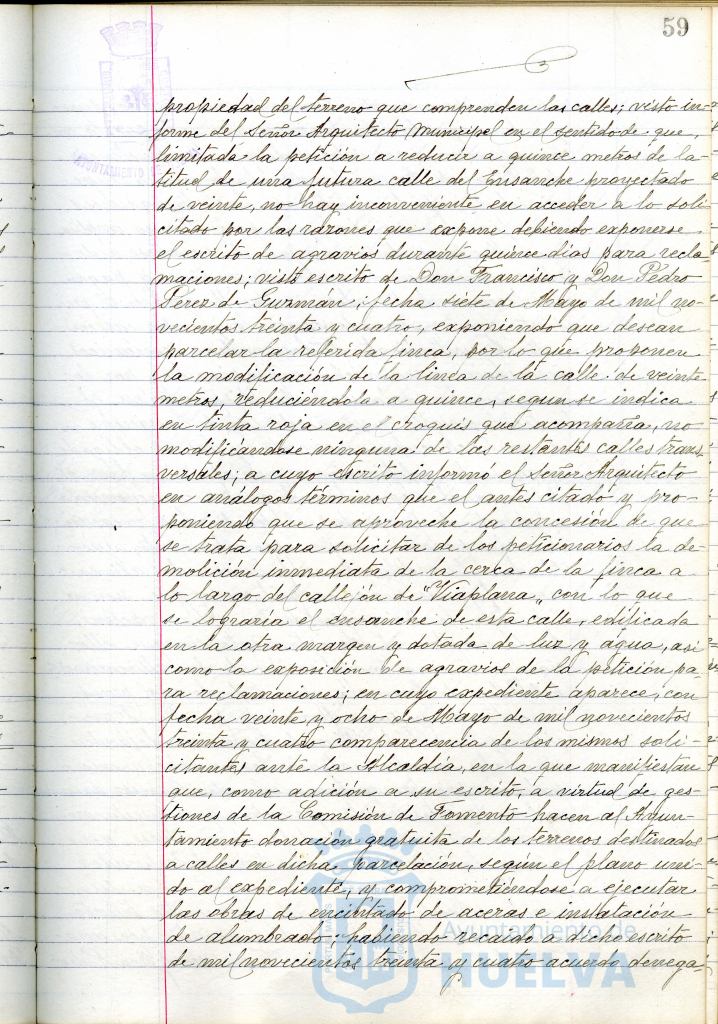 59
propiedad del terreno que comprenden las calles; visto in-
forme del Señor Arquitecto Municipal en el sentido de que,
limitada la petición a reducir a quince metros de la-
titud de una futura calle del Ensanche proyectado
de veinte, no hay inconveniente en acceder a lo soli-
citado por las razones que expone debiendo exponerse
el escrito de agravios durante quince días para recla-
maciones; visto escrito de Don Francisco y Don Pedro
Pérez de Guzmán, fecha siete de Mayo de mil no-
vecientos treinta y cuatro, exponiendo que desean
parcelar la referida finca, por lo que proponen
la modificación de la linea de la calle de veinte
metros, reduciéndola a quince, segun se indica
en tinta roja en el croquis que acompaña, no
modificándose ninguna de las restantes calles trans-
versales; a cuyo escrito informó el Señor Arquitecto
en análogos términos que el antes citado y pro-
poniendo que se aproveche la concesión de que
se trata para solicitar de los peticionarios la de-
molición inmediata de la cerca de la finca a
lo largo del callejón de "Viaplana" con lo que
se lograría el ensanche de esta calle, edificada
en la otra margen y dotada de luz y agua, asi
como la exposición de agravios de la petición pa-
ra reclamaciones; en cuyo expediente aparece, con
fecha veinte y ocho de Mayo de mil novecientos
treinta y cuatro comparecencia de los mismos soli-
citantes ante la Alcaldía, en la que manifiestan
que, como adición a su escrito, a virtud de ges-
tiones de la Comisión de Fomento hacen al Ayun-
tamiento donación gratuita de los terrenos destinados
a calles en dicha parcelación, según el plano uni-
do al expediente, y comprometiéndose a ejecutar
las obras de encintado de aceras e instalación
de alumbrado; habiendo recaído a dicho escrito
de mil novecientos treinta y cuatro acuerdo denega-
Ayuntamiento de
HUELVA